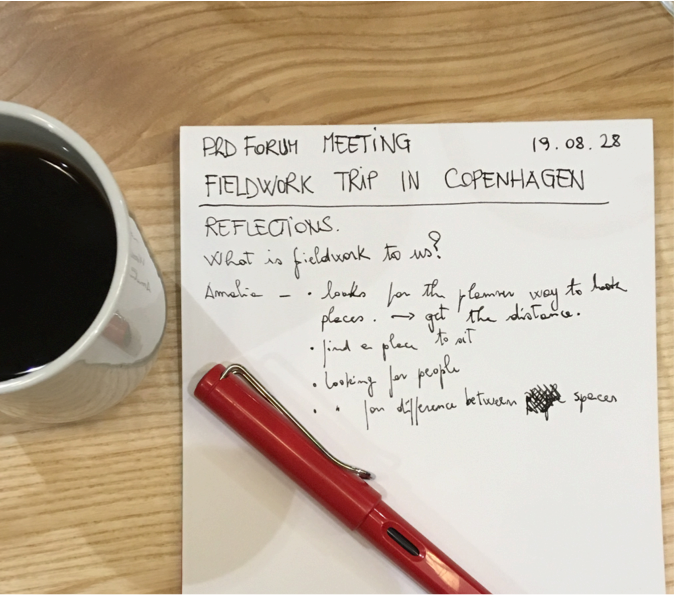 PRD FORUM MEETING 19.08.28
FIELDWORK TRIP IN COPENHAGEN
REFLECTIONS.
What is fieldwork to us?
Amalie – • looks for the planner way to look
places. → get the distance.
• find a place to sit
• looking for people
• " for difference between spaces